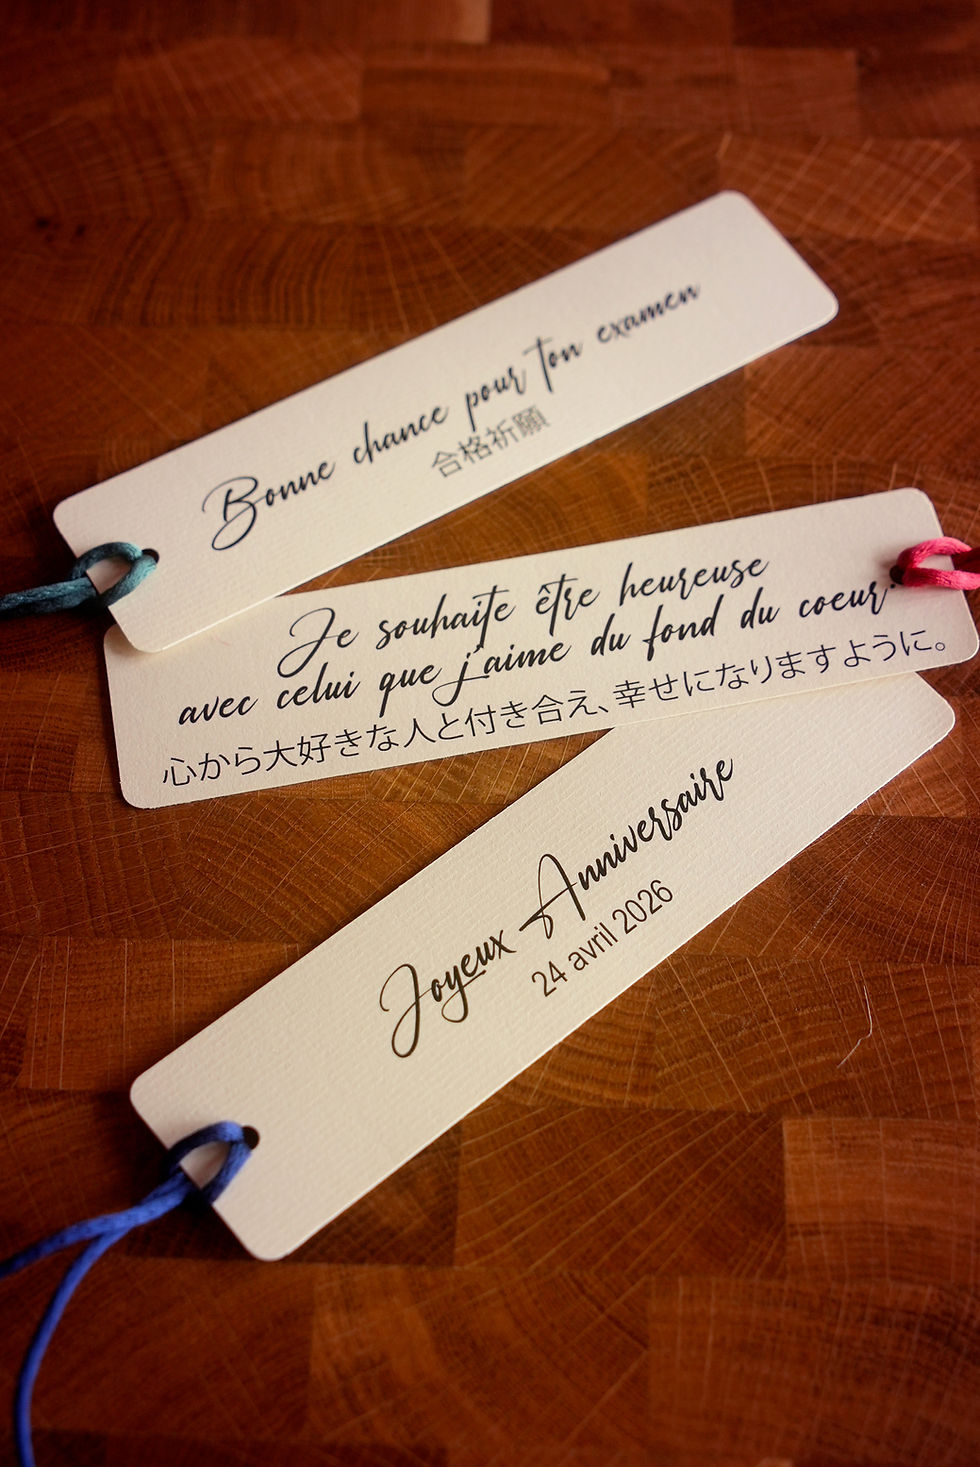 Bonne chance pour ton examen
合格祈願
Je souhaite être heureuse
avec celui que j'aime du fond du coeur.
心から大好きな人と付き合え、幸せになりますように。
Joyeux Anniversaire
24 avril 2026